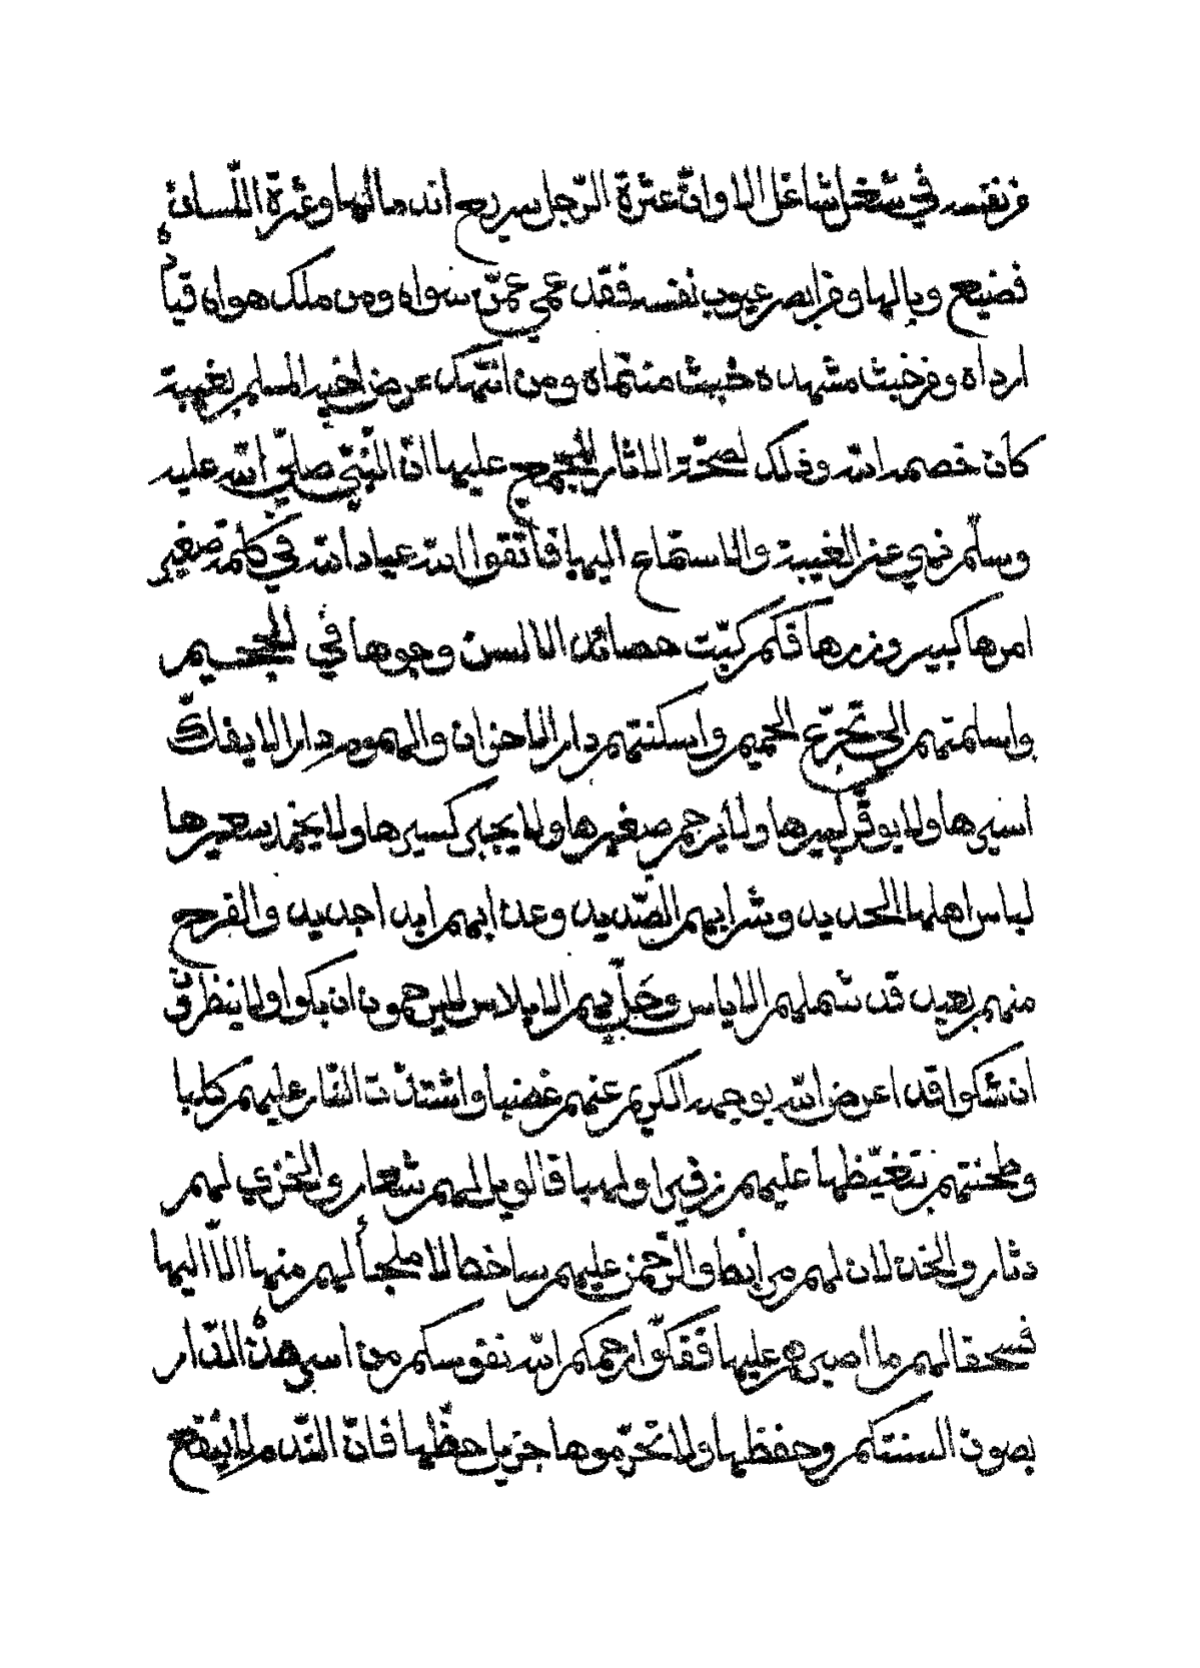 من نفسه في شغل شاغل الا وانّ عثرة الرّجل سريع اندمالها وعثرة اللّسان
فضيع وبالها ومن ابصر عيوب نفسه فقد عمي عمّن سواه ومن ملك هواه قياده
ارداه ومن خبث مشهده خبث منتماه ومن انتهك عرض اخيه المسلم بغيبة
كان خصمه الله وذلك لصحّة الاثار المجمع عليها انّ النّبيّ صلّي الله عليه
وسلّم نهي عن الغيبة والاستماع اليها فاتقوا الله عباد الله في كلمة صغير
امرها كبير وزرها فكم كبّت حصائد الالسن وجوها في الجحيم
واسلمتهم الي تجرّع الحميم واسكنتهم دار الاحزان والهموم دار لا يفكّ
اسيرها ولا يوقّر كبيرها ولا يرحم صغيرها ولا يجبر كسيرها ولا يخمد سعيرها
لباس اهلها الحديد وشرابهم الصّديد وعذابهم ابدا جديد والفرح
منهم بعيد قد شملهم الاياس وحلّ بهم الابلاس لا يرحمون ان بكوا ولا ينظر في
ان شكوا قد اعرض الله بوجهه الكريم عنهم غضبا واشتدّت النّار عليهم كلبا
وطحنتهم بتغيّظها عليهم زفيرا ولهبا فالويل لهم شعار والخزي لهم
دثار والخذلان لهم مرابط والرّحمن عليهم ساخط لا ملجأ لهم منها الاّ اليها
فسحقا لهم ما اصبرهم عليها ففكّوا رحمكم الله نفوسكم من اسر هذه الدّار
بصون السنتكم وحفظها ولا تحرّموها جزيل حظّها فانّ النّدم لا ينفع